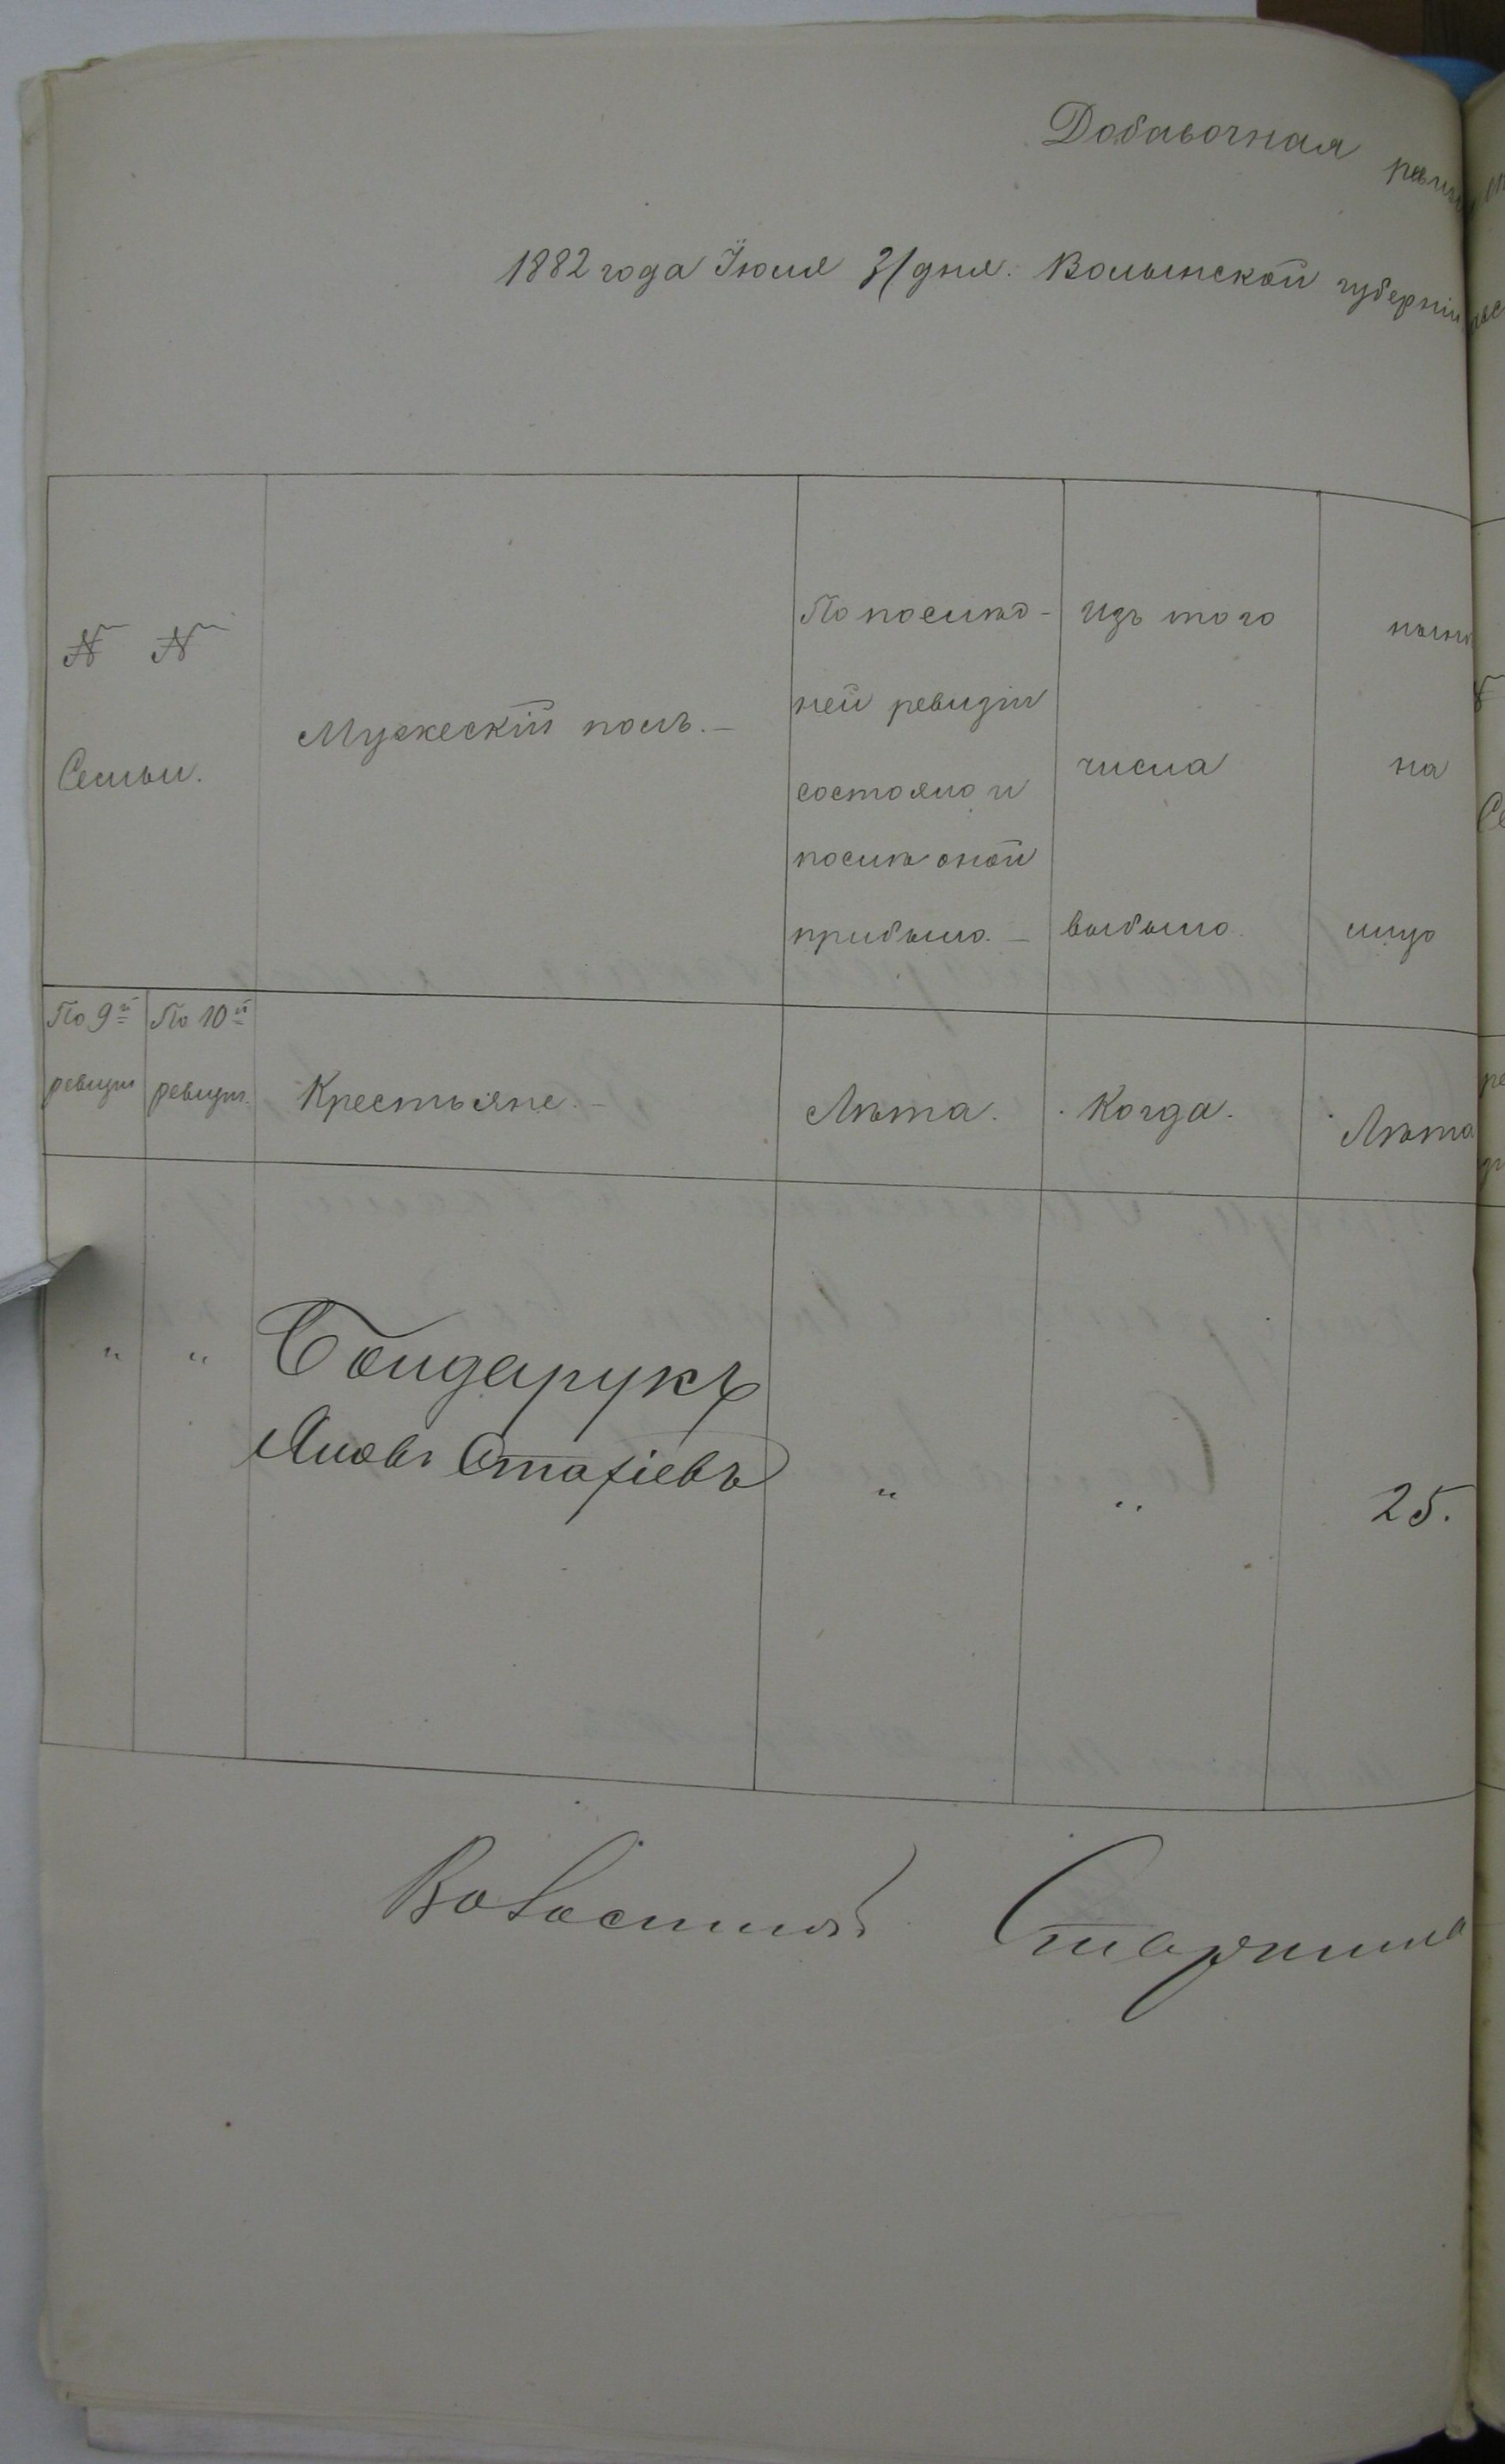 Добавочная
1882 года Іюля 31 дня. Волынской губерніи
№ №
Семьи.
Мужескій полъ. —
По послѣд-
ней ревизіи
состояло и
послѣ оной
прибыло. —
Изъ того
числа
выбыло.
нынѣ
на
лицо
По 9й
ревизіи
По 10й
ревизіи.
Крестьяне. —
Лѣта.
Когда.
Лѣта
" " Бондарукъ
Яковъ Стафіевъ " " 25.
Волостной Старшина